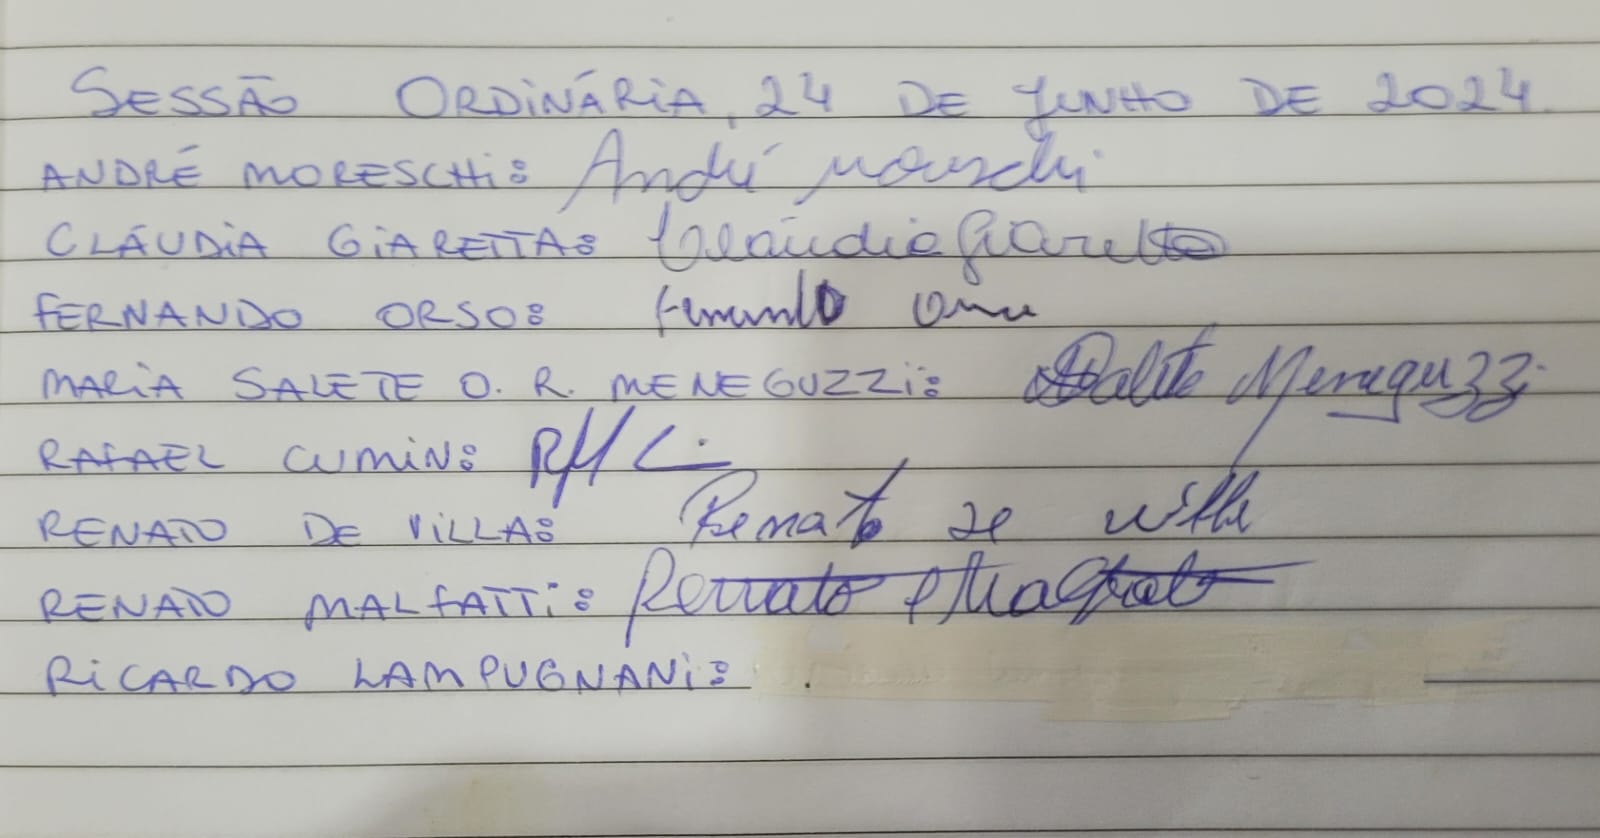 SESSÃO ORDINÁRIA, 24 DE JUNHO DE 2024.
ANDRÉ MORESCHI: André Moreschi
CLÁUDIA GIARETTA: Cláudia Giaretta
FERNANDO ORSO: Fernando Orso
MARIA SALETE O. R. MENEGUZZI: Salete Meneguzzi
RAFAEL CUMIN:
RENATO DE VILLA: Renato de Villa
RENATO MALFATTI: Renato Malfatti
RICARDO LAMPUGNANI: